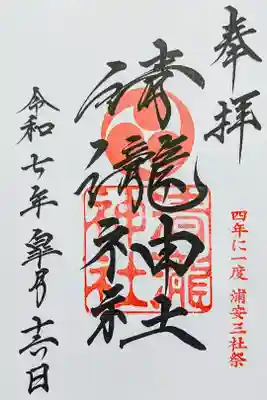 奉拝
四年に一度 浦安三社祭
清瀧神社
清瀧神社
令和七年皐月十六日